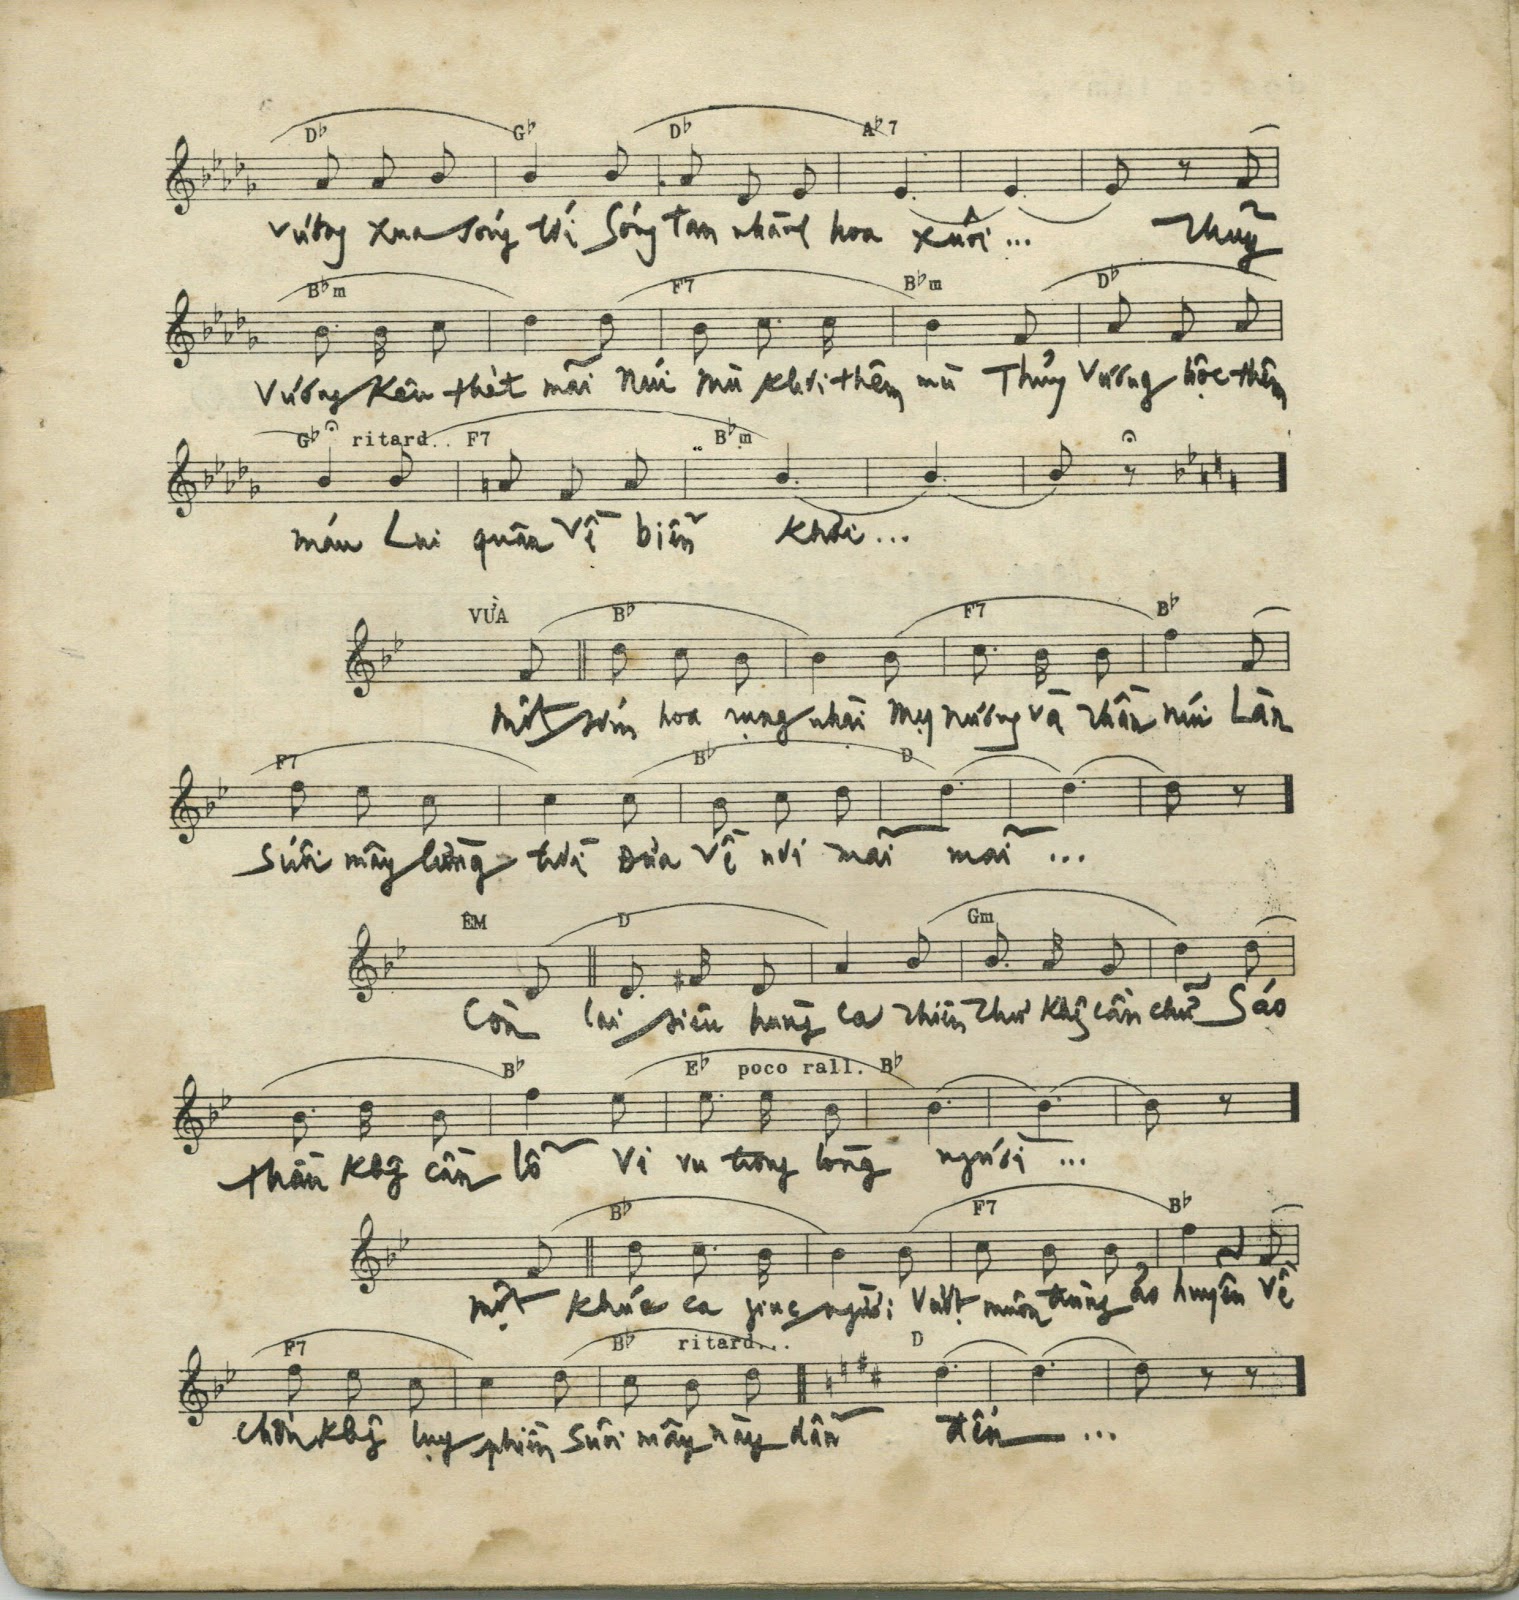 D♭ G♭ D♭ A♭7
Vương xưa sóng tới Sóng tan nhành hoa xuôi ... Thủy
B♭m F7 B♭m D♭
Vương kêu thét mãi Núi mù khơi thêm mù Thủy Vương hộc thêm
G♭ ritard.. F7 B♭m
máu Lui quân về biển khơi ...
VỪA B♭ F7 B♭
Một sớm hoa rụng nhài Mỵ Nương và Thần núi Lần
F7 B♭ D
Suối mây lưng trời Đưa về nơi mãi mãi ...
ÊM D Gm
Còn lại siêu hùng ca Thiên Thư không cần chữ Sáo
B♭ E♭ poco rall. B♭
thần không cần lỗ Vi vu trong lòng người ...
B♭ F7 B♭
Một khúc ca giục người Vượt muôn trùng ảo huyền Về
F7 B♭ ritard... D
chốn không lụy phiền Suối mây này dẫn đến ...